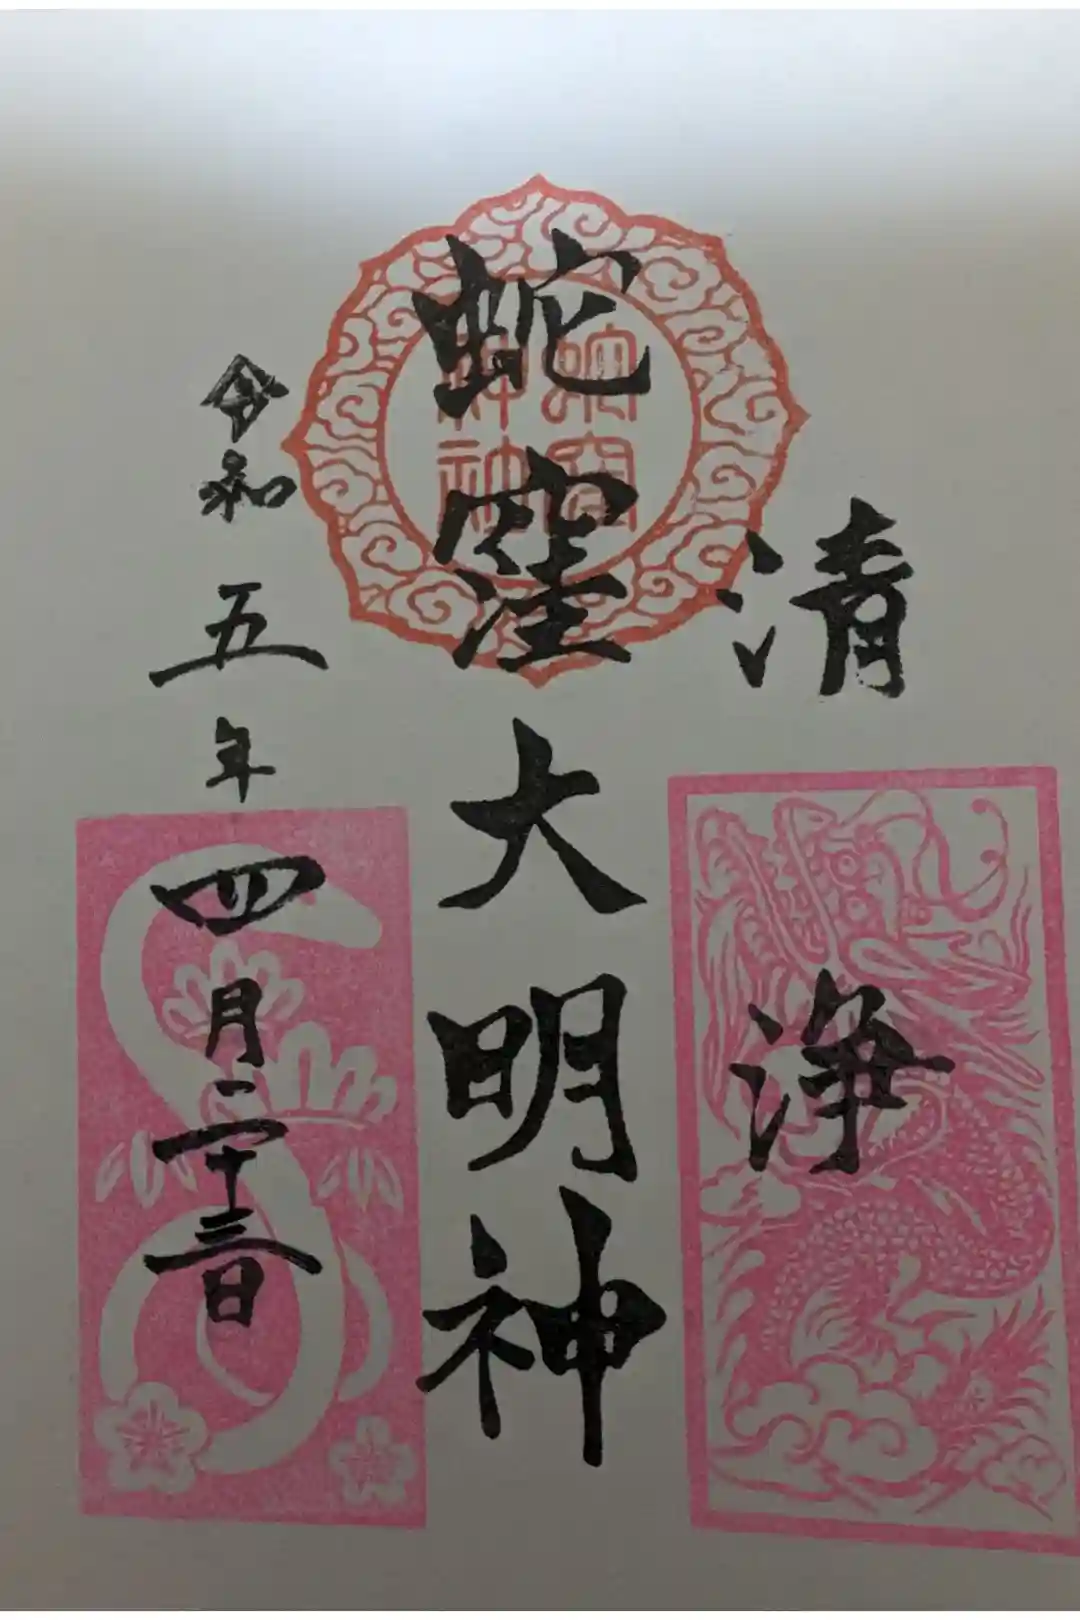 清浄
蛇窪大明神
令和五年四月二十三日
蛇窪
神社